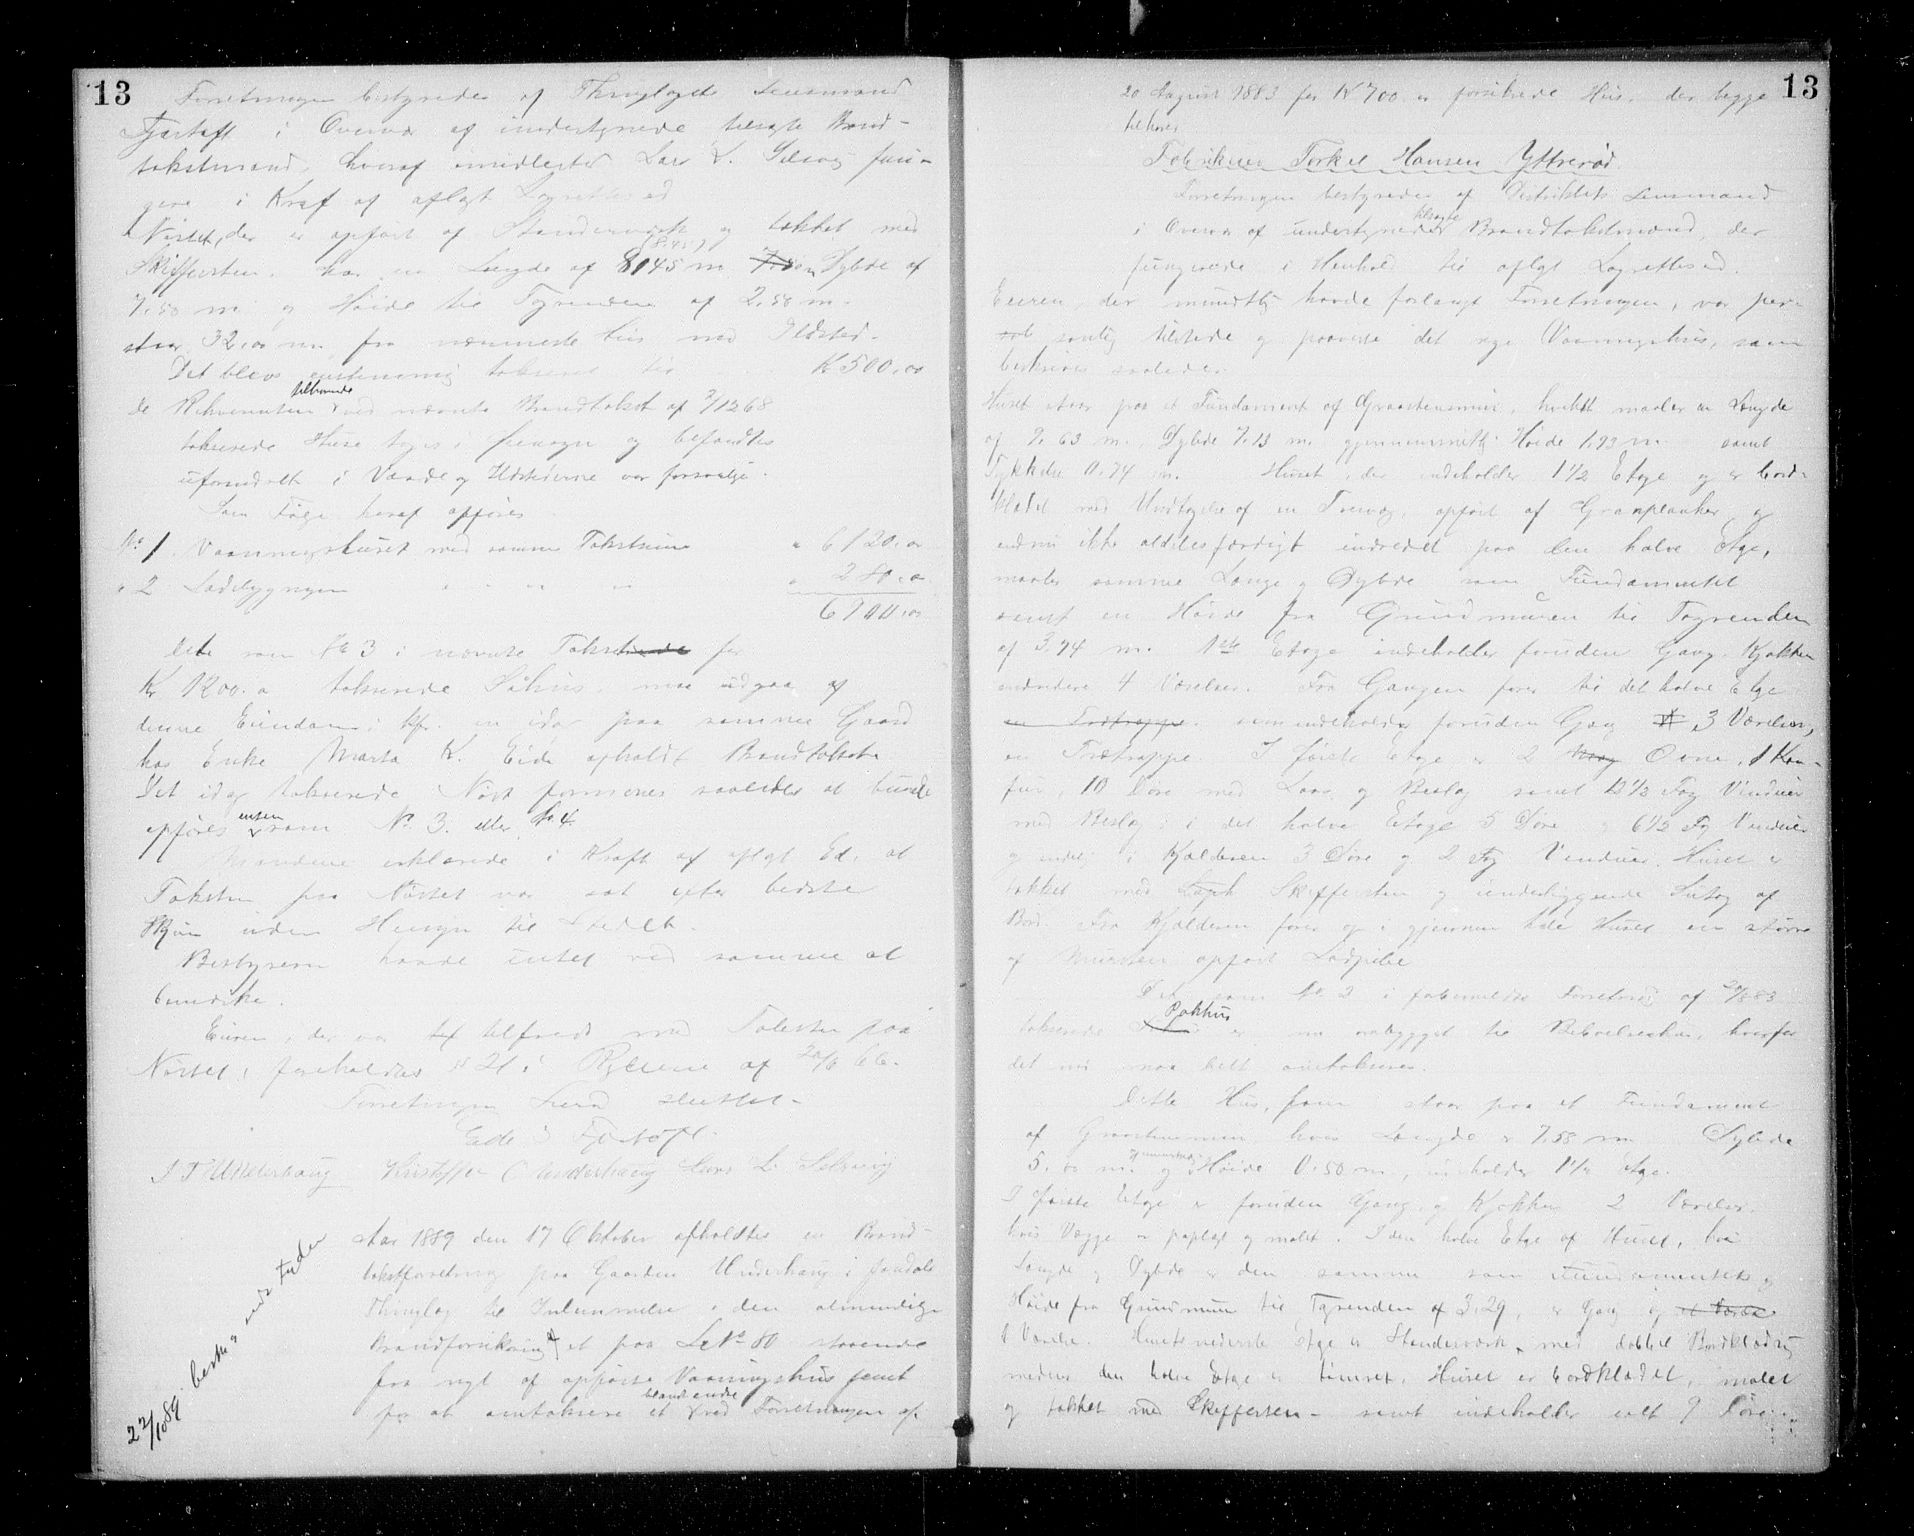 13
Forretningen bestyredes af Thinglagets Lensmand
Fjørtoft i Overvær af undertegnede tilsagte Brand-
takstmænd, hvoraf imidlertid Lars L. Selsvig fun-
gere i Kraf af aflagt Lagrettesed
Nøstet, der er opført af Standerværk og tækket med
Skiffersten, har en Længde af 8,45 m Dybde af
7,50 m og Høide til Tagrenden af 2,50 m.
staar 32,00 m fra nærmeste Hus med Ildsted.
Det blev eenstemmig takseret til Kr 500,00
De Rekvirenten tilhørende ved nævnte Brandtakst af 2/12 68
takserede Huse toges i Øiesyn og befandtes
uforandret i Værdi og Ildstederne var forsvarlige.
Som Følge heraf opføres
No 1. Vaaningshuset med samme Takstsum " 6120,00
" 2 Ladebygningen " " " " 280,00
6400,00
Det som No 3 i nævnte Takst for
Kr 1200,0 takserede Søhus, maa udgaa af
denne Eiendom, kfr. en idag paa samme Gaard
hos Enke Marta K. Eide afholdt Brandtakst
Det idag takserede Nøst formenes saaledes at burde
opføres enten som No 3. eller No 4.
Mændene erklærede i Kraft af aflagt Ed, at
Taksten paa Nøstet var sat efter bedste
Skjøn uden Hensyn til Stedet.
Bestyreren havde intet ved samme at
bemærke.
Eieren, der var tilfreds med Taksten paa
Nøstet, foreholdtes § 21 i Reglerne af 20/6 66.
Forretningen hermed sluttet.
Ede J Fjørtoft.
J T Underhaug Kristoffer O Underhaug Lars L. Selsvig
22/10 89. besk. udstedes
Aar 1889 den 17 Oktober afholdtes en Brand-
takstforretning paa Gaarden Underhaug i Jondals
Thinglag til Indlemmelse i den almindelige
Brandforsikring af et paa L No 80 staaende
fra nyt af opførte Vaaningshus samt
for at omtaksere et blandt andre ved Forretningen af
13
20 August 1883 for Kr 700 forsikrede Hus, der begge
tilhører
Fabrikeier Torkel Hansen Yttrerød.
Forretningen bestyredes af Distriktets Lensmand
i Overvær af undertegnede tilsagte Brandtakstmænd, der
fungerede i Henhold til aflagt Lagrettesed.
Eieren, der mundtlig havde forlangt Forretningen, var per-
sonlig tilstede og paaviste det nye Vaaningshus, som
beskrives saaledes:
Huset staar paa et Fundament af Graastensmur, hvilket maaler en Længde
af 9,63 m. Dybde 7,13 m. gjennemsnitlig Høide 1,93 m samt
Tykkelse 0,74 m. Huset, der indeholder 1½ Etage og er bord-
klædt med Undtagelse af en Tvervæg, opført af Granplanker og
endnu ikke aldeles færdigt indredet paa den halve Etage,
maaler samme Længe og Dybde som Fundamentet
samt en Høide fra Grundmuren til Tagrenden
af 3,74 m. 1ste Etage indeholder foruden Gang, Kjøkken
endvidere 4 Værelser. Fra Gangen fører til det halve Etge
en Trætrappe. som indeholder foruden Gang 3 Værelser,
en Trætrappe. I første Etage er 2 Ovne, 1 Kom-
fur, 10 Døre med Laas og Beslag samt 12½ Fag Vinduer
med Beslag; i det halve Etage 5 Døre og 6½ Fg Vinduer
og endelig i Kjælderen 3 Døre og 2 Fag Vinduer. Huset er
tækket med Skiffersten og underliggende Sutag af
Bord. Fra Kjælderen fører op i gjennem hele Huset en større
af Mursten opført Ladpibe
Det som No 2 i fabemeldte Forretning af 20/8 83
takserede Pakhus er nu ombygget til Beboelseshus, hvorfor
det nu maa helt omtakseres.
Dette Hus, som staar paa et Fundament
af Graastensmur, hvis Længde er 7,58 m Dybde
5,00 m. og gjennemsnitlig Høide 0,50 m, indeholder 1½ Etage.
I første Etage er foruden Gang og Kjøkken 2 Værelser.
hvis Vægge er paplagt og malet. I den halve Etage af Huset, hvis
Længde og Dybde er den samme som Fundamentets og
Høide fra Grundmuren til Tagrenden af 3,29, er Gang og
1 Værelse. Husets nederste Etage er Standerværk, med dobbelt Bordklædning
medens den halve Etage er tømret, Huset er bordklædet, malet
og tækket med Skiffersten – samt indeholder ialt 9 Døre